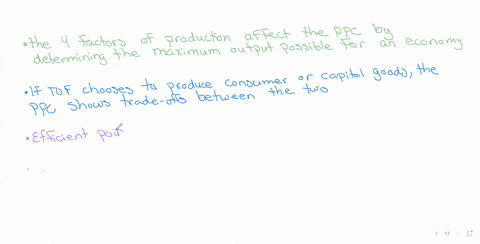 •the 4 factors of production affect the PPC by
determining the maximum output possible for an economy
•If TOF chooses to produce consumer or capital goods, the
PPC shows trade-offs between the two
•Efficient poin